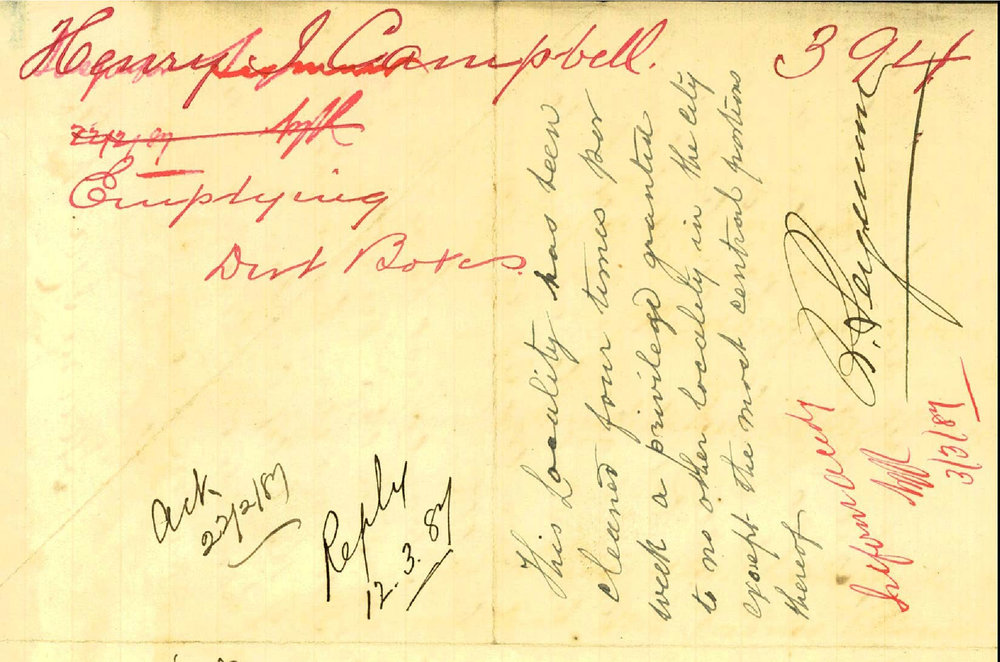 Henry J Campbell. 394
22/2/87
Emptying
Dirt Boxes.
Ack
22/2/87
Reply
12.3.87
This Locality has been
cleaned four times per
week a privilege granted
to no other locality in the city
except the most central portions
thereof
R. Seymour
Inform
3/3/87